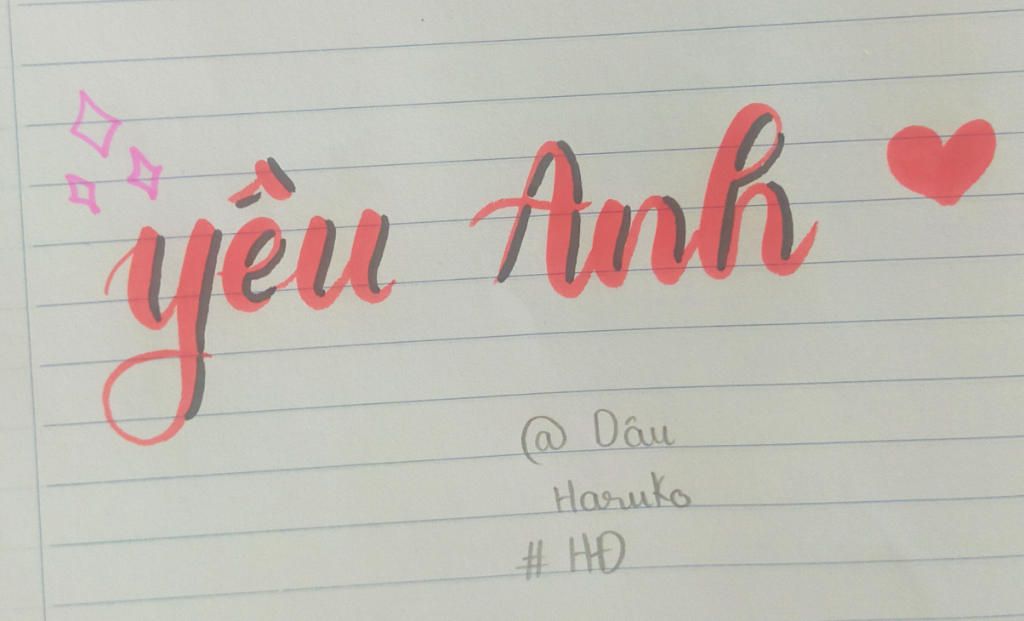 yêu Anh
@ Dâu
Haruko
# HĐ